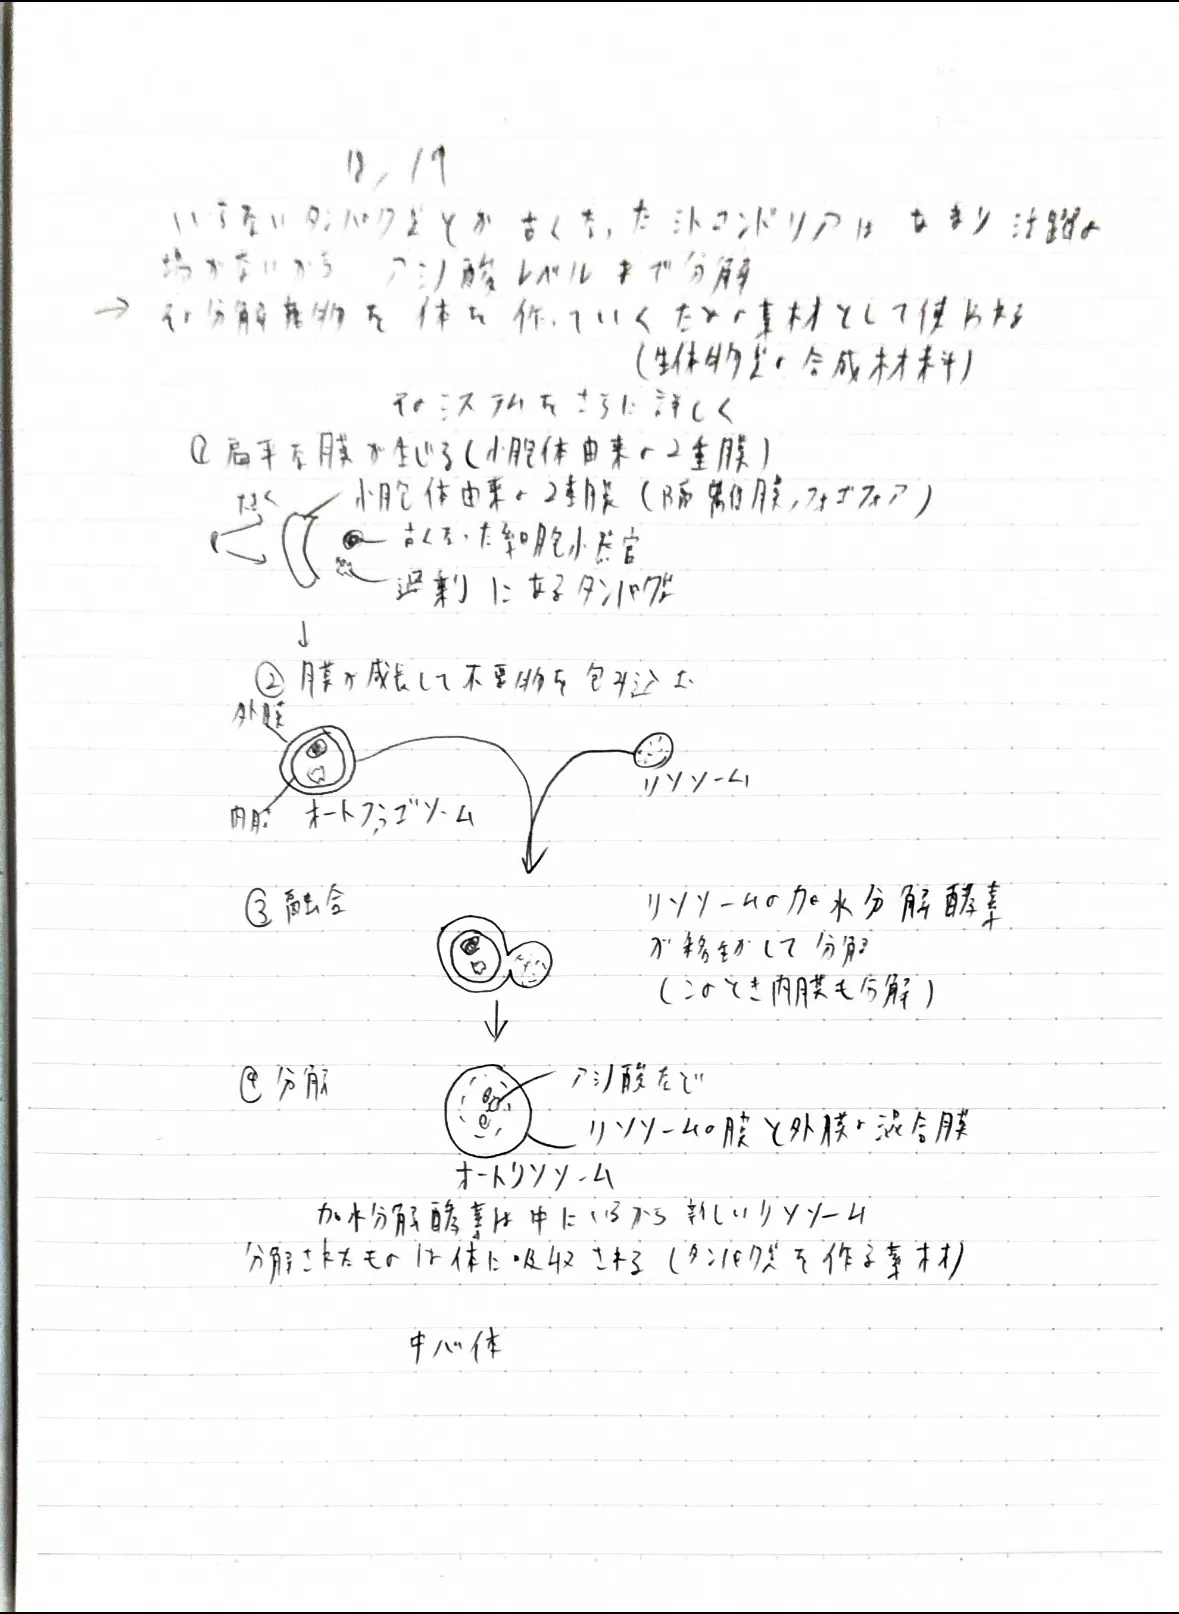 12/19
いらないタンパク質とか古くなったミトコンドリアはあまり活躍の
場がないから アミノ酸レベルまで分解
→ その分解産物を体を作っていくための素材として使われる
(生体物質の合成材料)
そのシステムをさらに詳しく
① 扁平な膜が生じる(小胞体由来の2重膜)
小胞体由来の2重膜(隔離膜,ファゴフォア)
古くなった細胞小器官
過剰にあるタンパク質
↓
② 膜が成長して不要物を包み込む
外膜
リソソーム
内膜 オートファゴソーム
③ 融合
リソソームの加水分解酵素
が移動して分解
(このとき内膜も分解)
④ 分解
アミノ酸など
リソソームの膜と外膜の混合膜
オートリソソーム
加水分解酵素は中にいるから新しいリソソーム
分解されたものは体に吸収される(タンパク質を作る素材)
中心体